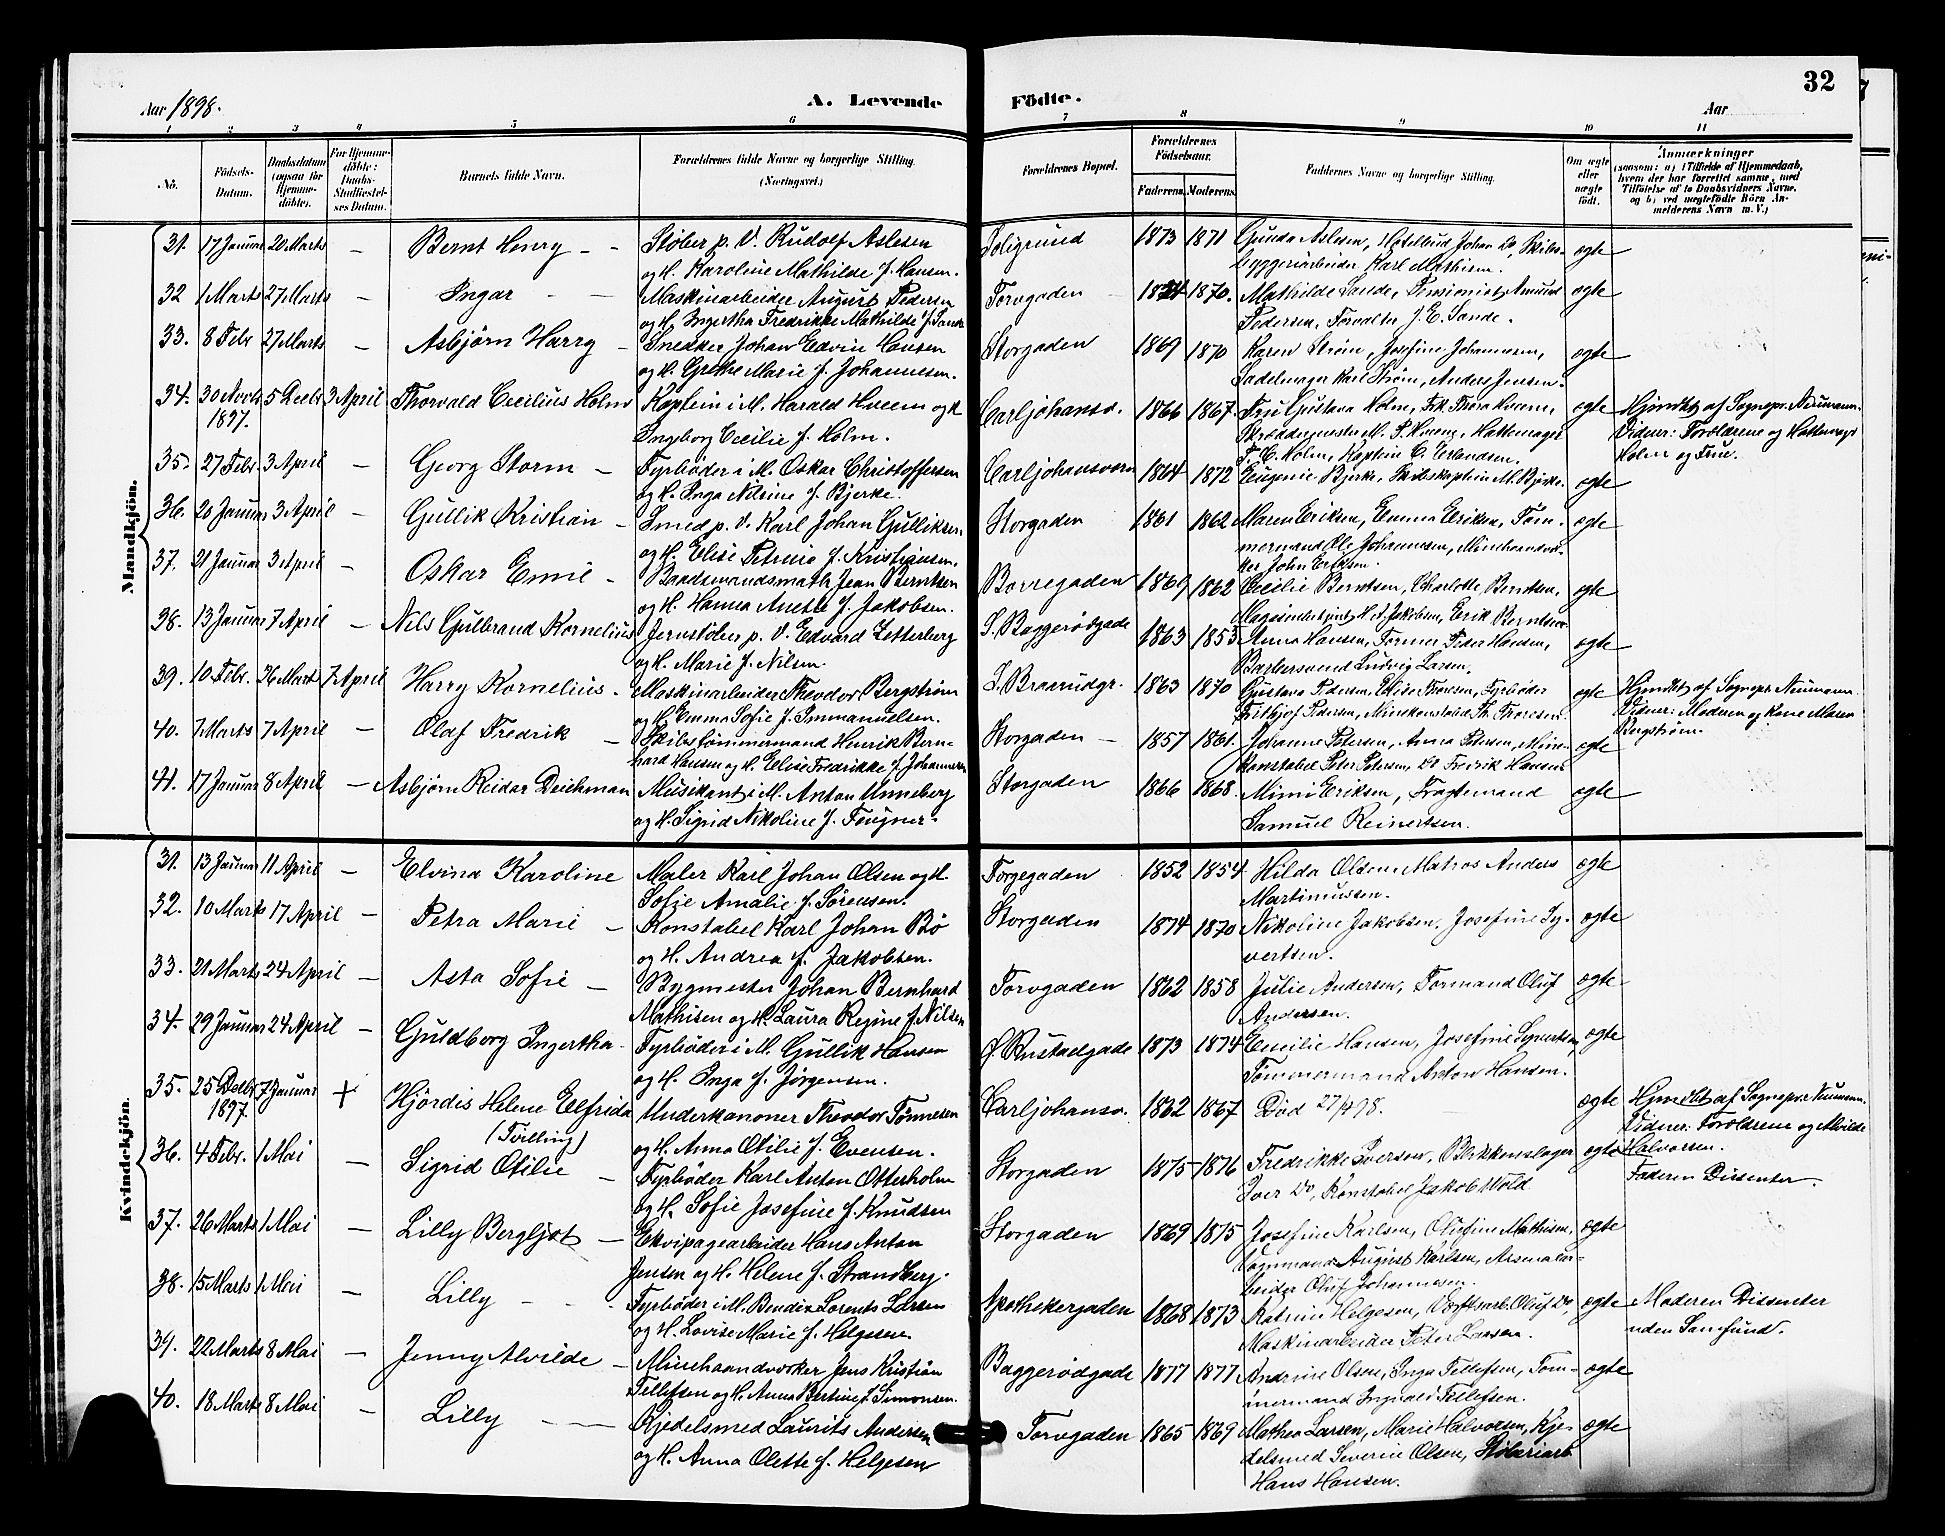 32
Aar 1898.
A. Levende
Födte.
Aar
1 2 3 4 5 6 7 8 9 10 11
No.
Födsels-Datum.
Daabsdatum (ogsaa for Hjemmedöbte).
For Hjemmedöbte: Daabs-Stadfæstelses Datum.
Barnets fulde Navn.
Forældrenes fulde Navne og borgerlige Stilling. (Næringsvei.)
Forældrenes Bopæl.
Forældrenes Födselsaar.
Faderens. Moderens.
Faddernes Navne og borgerlige Stilling.
Om ægte eller uægte födt.
Anmærkninger
(saasom: a) i Tilfælde af Hjemmedaab,
hvem der har forrettet samme, med
Tilföielse af to Daabsvidners Navne,
og b) ved uægtefödte Börn An-
melderens Navn m. V.)
Mandkjön.
31. 17 Januar 20 Marts — Bernt Henry — Støber p. V. Rudolf Aslesen
og H. Karoline Mathilde f. Hansen.
1873 1871 Gunda Aslesen, Hotelbud Johan Do, Skibs-
byggeriarbeider Karl Mathisen. ægte
32 1 Marts 27 Marts — Ingar — Maskinarbeider August Pedersen
og H. Ingertha Fredrikke Mathilde f. Sande
Torvgaden 1874 1870. Mathilde Sande, Pensionist Amund
Pedersen, Forvalter J. E. Sande. ægte
33. 8 Febr 27 Marts — Asbjørn Harry — Snedker Johan Edvin Hansen
og H. Grethe Marie f. Johannesen.
Storgaden 1869 1870 Karen Strøm, Josefine Johannesen,
Sadelmager Karl Strøm, Anders Jensen. ægte
34. 30 Novbr 1897. 5 Decbr 3 April Thorvald Cecilius Holm Kaptein i M. Harald Hveem og H.
Ingborg Cecilie f. Holm.
Carljohansv. 1866 1867. Fru Gustava Holm, Frk. Thora Hveem,
Skræddermester M. P. Hveem, Hattemager
T. C. Holm, Kaptein C. Erlandsen. ægte
Hjemdbt af Sognepr. Neumann.
Vidner: Forældrene og Hattemagr
Holm og Frue.
35. 27 Febr. 3 April — Georg Storm — Fyrbøder i M. Oskar Christoffersen
og H. Inga Nilsine f. Bjerke.
Carljohansværn 1864 1872 Eugenie Bjerke, Skibskaptein M. Bjerke. ægte
36. 20 Januar 3 April — Gullik Kristian — Smed p. V. Karl Johan Gulliksen
og H. Elise Petrine f. Kristiansen.
Storgaden 1861 1862 Maren Eriksen, Emma Eriksen, Tøm-
mermand Ole Johannesen, Minehaandvær-
ker John Eriksen. ægte
37. 21 Januar 3 April — Oskar Emil — Baadsmandsmath Jean Berntsen
og H. Hanna Anette f. Jakobsen.
Borregaden 1869 1862 Cecilie Berntsen, Charlotte Berntsen,
Magasinbetjent H. A. Jakobsen, Erik Berntsen. ægte
38. 13 Januar 7 April — Nils Gulbrand Kornelius Jernstøber p. V. Edvard Zetterberg
og H. Marie f. Nilsen.
S. Baggerødgade 1863 1853 Anna Hansen, Former Peder Hansen,
Barbersvend Ludvig Larsen. ægte
39. 10 Febr. 26 Mart 7 April Harry Kornelius. Maskinarbeider Theodor Bergstrøm
og H. Emma Sofie f. Immanuelsen.
L. Braarudgr. 1863 1870 Gustava Pedersen, Elise Thoresen, Fyrbøder
Fritjof Pedersen, Minekonstabel Th. Thoresen. ægte
Hjemdbt af Sognepr. Neumann
Vidner: Moderen og Kone Maren
Bergstrøm.
40. 7 Marts 7 April — Olaf Fredrik — Skibstømmermand Henrik Bern-
hard Hansen og H. Elise Fredrikke f. Johannesen
Storgaden — 1857 1861. Johanne Petersen, Anna Petersen, Mine-
konstabel Peter Petersen, Do Fredrik Hansen ægte
41. 17 Januar 8 April — Asbjørn Reidar Deichman Musikant i M. Anton Unneberg
og H. Sigrid Nikoline f. Fougner.
Storgaden 1866 1868. Mimi Eriksen, Fragtemand
Samuel Reinertsen. ægte
Kvindekjön.
31. 13 Januar 11 April — Elvina Karoline Maler Karl Johan Olsen og H.
Sofie Amalie f. Sørensen.
Torgegaden 1852 1854 Hilda Olsen, Matros Anders
Martinussen. ægte
32. 10 Marts 17 April — Petra Marie — Konstabel Karl Johan Bø
og H. Andrea f. Jakobsen.
Storgaden 1874 1870 Nikoline Jakobsen, Josefine Sy-
vertsen. ægte
33. 21 Marts 24 April — Asta Sofie — Bygmester Johan Bernhard
Mathisen og H. Laura Regine f. Nilsen
Torvgaden 1862 1858 Julie Andersen, Formand Oluf
Andersen. ægte
34. 29 Januar 24 April — Guldborg Ingertha. Fyrbøder i M. Gullik Hansen
og H. Inga f. Jørgensen.
Ø. Rustadgade 1873 1874 Cecilie Hansen, Josefine Syvertsen,
Tømmermand Anton Hansen. ægte
35. 25 Decbr 1897. 7 Januar + Hjördis Helene Elfrida
(Tvilling)
Underkanoner Theodor Tønnesen
og H. Anna Otilie f. Evensen.
Carljohansv. 1862 1867 Død 27/4 98. ægte
Hjemdbt af Sognepr. Neumann.
Vidner: Forældrene og Alvilde
Halvorsen.
Faderen Dissenter.
36. 4 Febr. 1 Mai — Sigrid Otilie — Fyrbøder Karl Anton Otterholm
og H. Sofie Josefine f. Knudsen
Storgaden 1875 1876 Fredrikke Iversen, Blikkenslager
Iver Do, Konstabel Jakob Wold. ægte
37. 26 Marts 1 Mai — Lilly Bergljot — Ekvipagearbeider Hans Anton
Jensen og H. Helene f. Strandberg.
Storgaden 1869 1875 Josefine Karlsen, Olufine Mathisen,
Vognmand August Karlsen, Arsenalar-
beider Oluf Johannesen. ægte
38. 15 Marts 1 Mai — Lilly — Fyrbøder i M. Bendix Lorents Larsen
og H. Lovise Marie f. Helgesen
Apothekergaden 1868 1873 Katrine Helgesen, Værftsarb. Oluf Do,
Maskinarbeider Peter Larsen. ægte
Moderen Dissenter
uden Samfund.
39. 22 Marts 8 Mai — Jenny Alvilde — Minehaandværker Jens Kristian
Tellefsen og H. Anna Bertine f. Simonsen.
Baggerødgade 1877 1877 Andrine Olsen, Inga Tellefsen, Tøm-
mermand Ingvald Tellefsen. ægte
40. 18 Marts 8 Mai — Lilly — Kjedelsmed Laurits Andersen
og H. Anna Olette f. Helgesen
Torvgaden 1865 1869 Mathea Larsen, Marie Halvorsen, Kje-
delsmed Severin Olsen, Støberiarb.
Hans Hansen. ægte